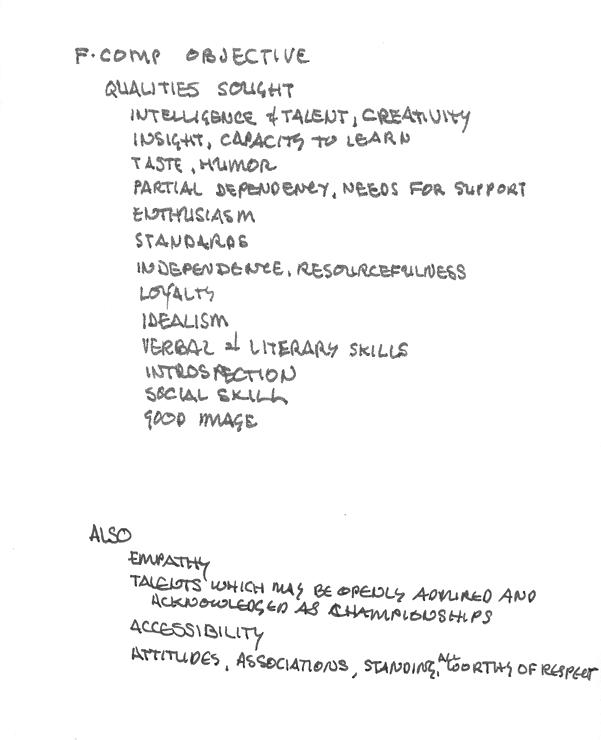 F. COMP OBJECTIVE
QUALITIES SOUGHT
INTELLIGENCE & TALENT, CREATIVITY
INSIGHT, CAPACITY TO LEARN
TASTE, HUMOR
PARTIAL DEPENDENCY, NEEDS FOR SUPPORT
ENTHUSIASM
STANDARDS
INDEPENDENCE, RESOURCEFULNESS
LOYALTY
IDEALISM
VERBAL & LITERARY SKILLS
INTROSPECTION
SOCIAL SKILL
GOOD IMAGE
ALSO
EMPATHY
TALENTS WHICH MAY BE OPENLY ADMIRED AND
ACKNOWLEDGED AS CHAMPIONSHIPS
ACCESSIBILITY
ATTITUDES, ASSOCIATIONS, STANDING, ALL WORTHY OF RESPECT